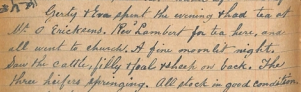 Gerty & Eva spent the evening & had tea at
Mr. O. Ericksens. Revd Lambert for tea here, and
all went to church. A fine moonlit night.
Saw the cattle, filly & foal & sheep on back. The
three heifers springing. All stock in good condition